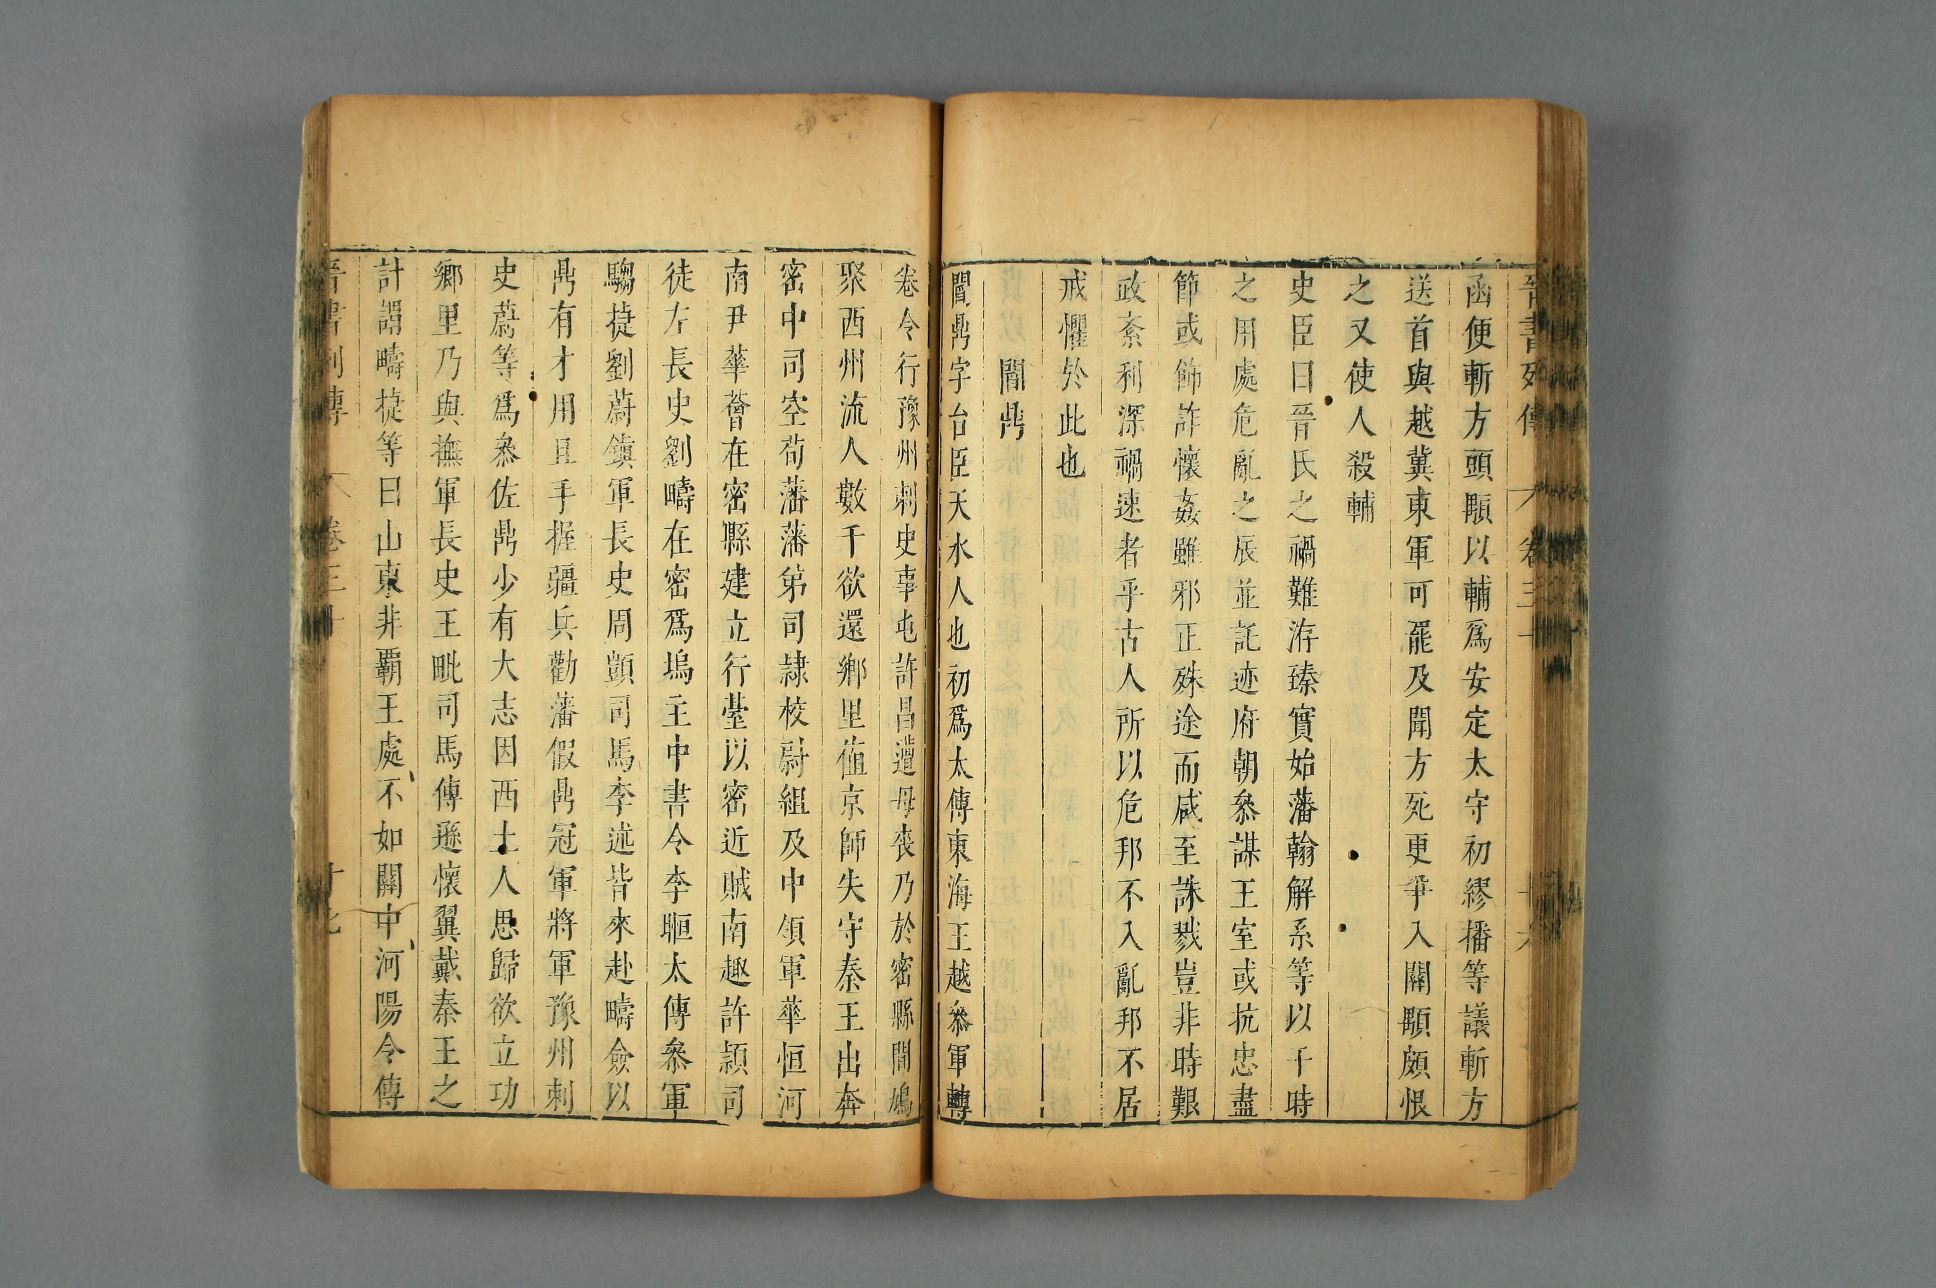 晉書列傳 卷三十 十六
函便斬方頭顒以輔爲安定太守初繆播等議斬方
送首與越冀東軍可罷及聞方死更爭入關顒頗恨
之又使人殺輔
史臣曰晉氏之禍難洊臻實始藩翰解系等以干時
之用處危亂之辰並託迹府朝叅謀王室或抗忠盡
節或飾詐懷姦雖邪正殊途而咸至誅戮豈非時艱
政紊利深禍速者乎古人所以危邦不入亂邦不居
戒懼於此也
閻鼎
閻鼎字台臣天水人也初爲太傅東海王越叅軍轉
卷令行豫州刺史事屯許昌遭母喪乃於密縣間鳩
聚西州流人數千欲還鄉里值京師失守秦王出奔
密中司空荀藩藩弟司隸校尉組及中領軍華恒河
南尹華薈在密縣建立行臺以密近賊南趣許潁司
徒左長史劉疇在密爲塢主中書令李暅太傅叅軍
騶捷劉蔚鎭軍長史周顗司馬李述皆來赴疇僉以
鼎有才用且手握彊兵勸藩假鼎冠軍將軍豫州刺
史蔚等爲叅佐鼎少有大志因西土人思歸欲立功
鄉里乃與撫軍長史王毗司馬傅遜懷翼戴秦王之
計謂疇捷等曰山東非覇王處不如關中河陽令傅
晉書列傳 卷三十